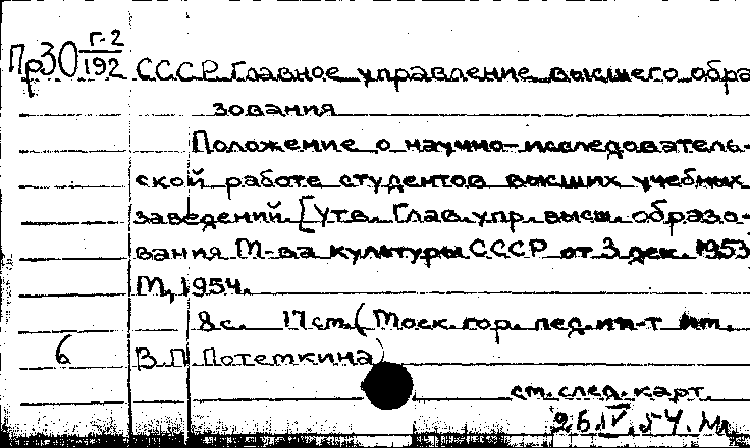 Пр30 Г-2/192
СССР. Главное управление высшего обра-
зования
Положение о научно-исследователь-
ской работе студентов высших учебных
заведений. [Утв. Глав. упр. высш. образо-
вания М-ва культуры СССР от 3 дек. 1953
М., 1954.
8 с. 17 см. (Моск. гор. пед. ин-т им.
6 В.П. Потемкина)
см. след. карт.
26.IV.54.